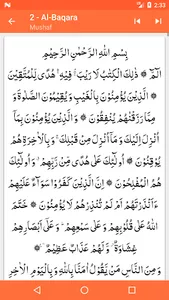 2:33
2 - Al-Baqara
Mushaf
بِسْمِ اللهِ الرَّحْمٰنِ الرَّحِيْمِ
الٓمّٓ ۞ ذٰلِكَ الْكِتٰبُ لَا رَيْبَ ۛ فِيْهِ ۛ هُدًى لِلْمُتَّقِيْنَ
۞ الَّذِيْنَ يُؤْمِنُوْنَ بِالْغَيْبِ وَيُقِيْمُوْنَ الصَّلٰوةَ وَ
مِمَّا رَزَقْنٰهُمْ يُنْفِقُوْنَ ۞ وَالَّذِيْنَ يُؤْمِنُوْنَ بِمَا
اُنْزِلَ اِلَيْكَ وَ مَا اُنْزِلَ مِنْ قَبْلِكَ وَ بِالْاٰخِرَةِ هُمْ
يُوْقِنُوْنَ ۞ اُولٰٓئِكَ عَلٰى هُدًى مِنْ رَبِّهِمْ وَ اُولٰٓئِكَ
هُمُ الْمُفْلِحُوْنَ ۞ اِنَّ الَّذِيْنَ كَفَرُوْا سَوَآءٌ عَلَيْهِمْ
ءَاَنْذَرْتَهُمْ اَمْ لَمْ تُنْذِرْهُمْ لَا يُؤْمِنُوْنَ ۞ خَتَمَ
اللهُ عَلٰى قُلُوْبِهِمْ وَ عَلٰى سَمْعِهِمْ وَ عَلٰٓى اَبْصَارِهِمْ
غِشَاوَةٌ وَّ لَهُمْ عَذَابٌ عَظِيْمٌ ۞
وَ مِنَ النَّاسِ مَنْ يَقُوْلُ اٰمَنَّا بِاللهِ وَ بِالْيَوْمِ الْاٰخِرِ